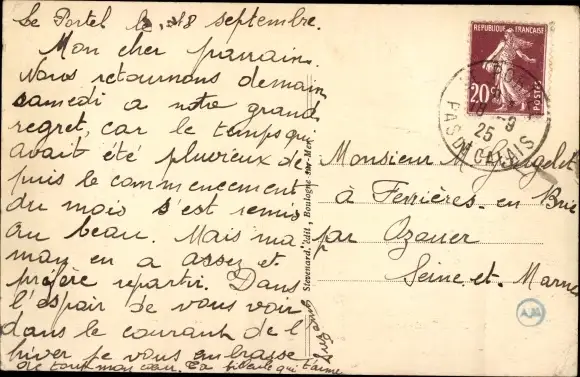 Le Portel le 18 septembre.
Mon cher parrain.
Nous retournons demain
samedi a notre grand
regret, car le temps qui
avait été pluvieux de
puis le commencement
du mois s'est remis
au beau. Mais ma
man en a assez et
préfère repartir. Dans
l'espoir de vous voir
dans le courant de l'
hiver je vous embrasse
de tout mon cœur. Ta filleule qui t'aime
Stevenard, édit., Boulogne-sur-Mer
REPUBLIQUE FRANÇAISE
20c
POSTES
-9
25
PAS DE CALAIS
Monsieur
à Ferrières-en Brie
par Ozouer
Seine-et-Marne
AM